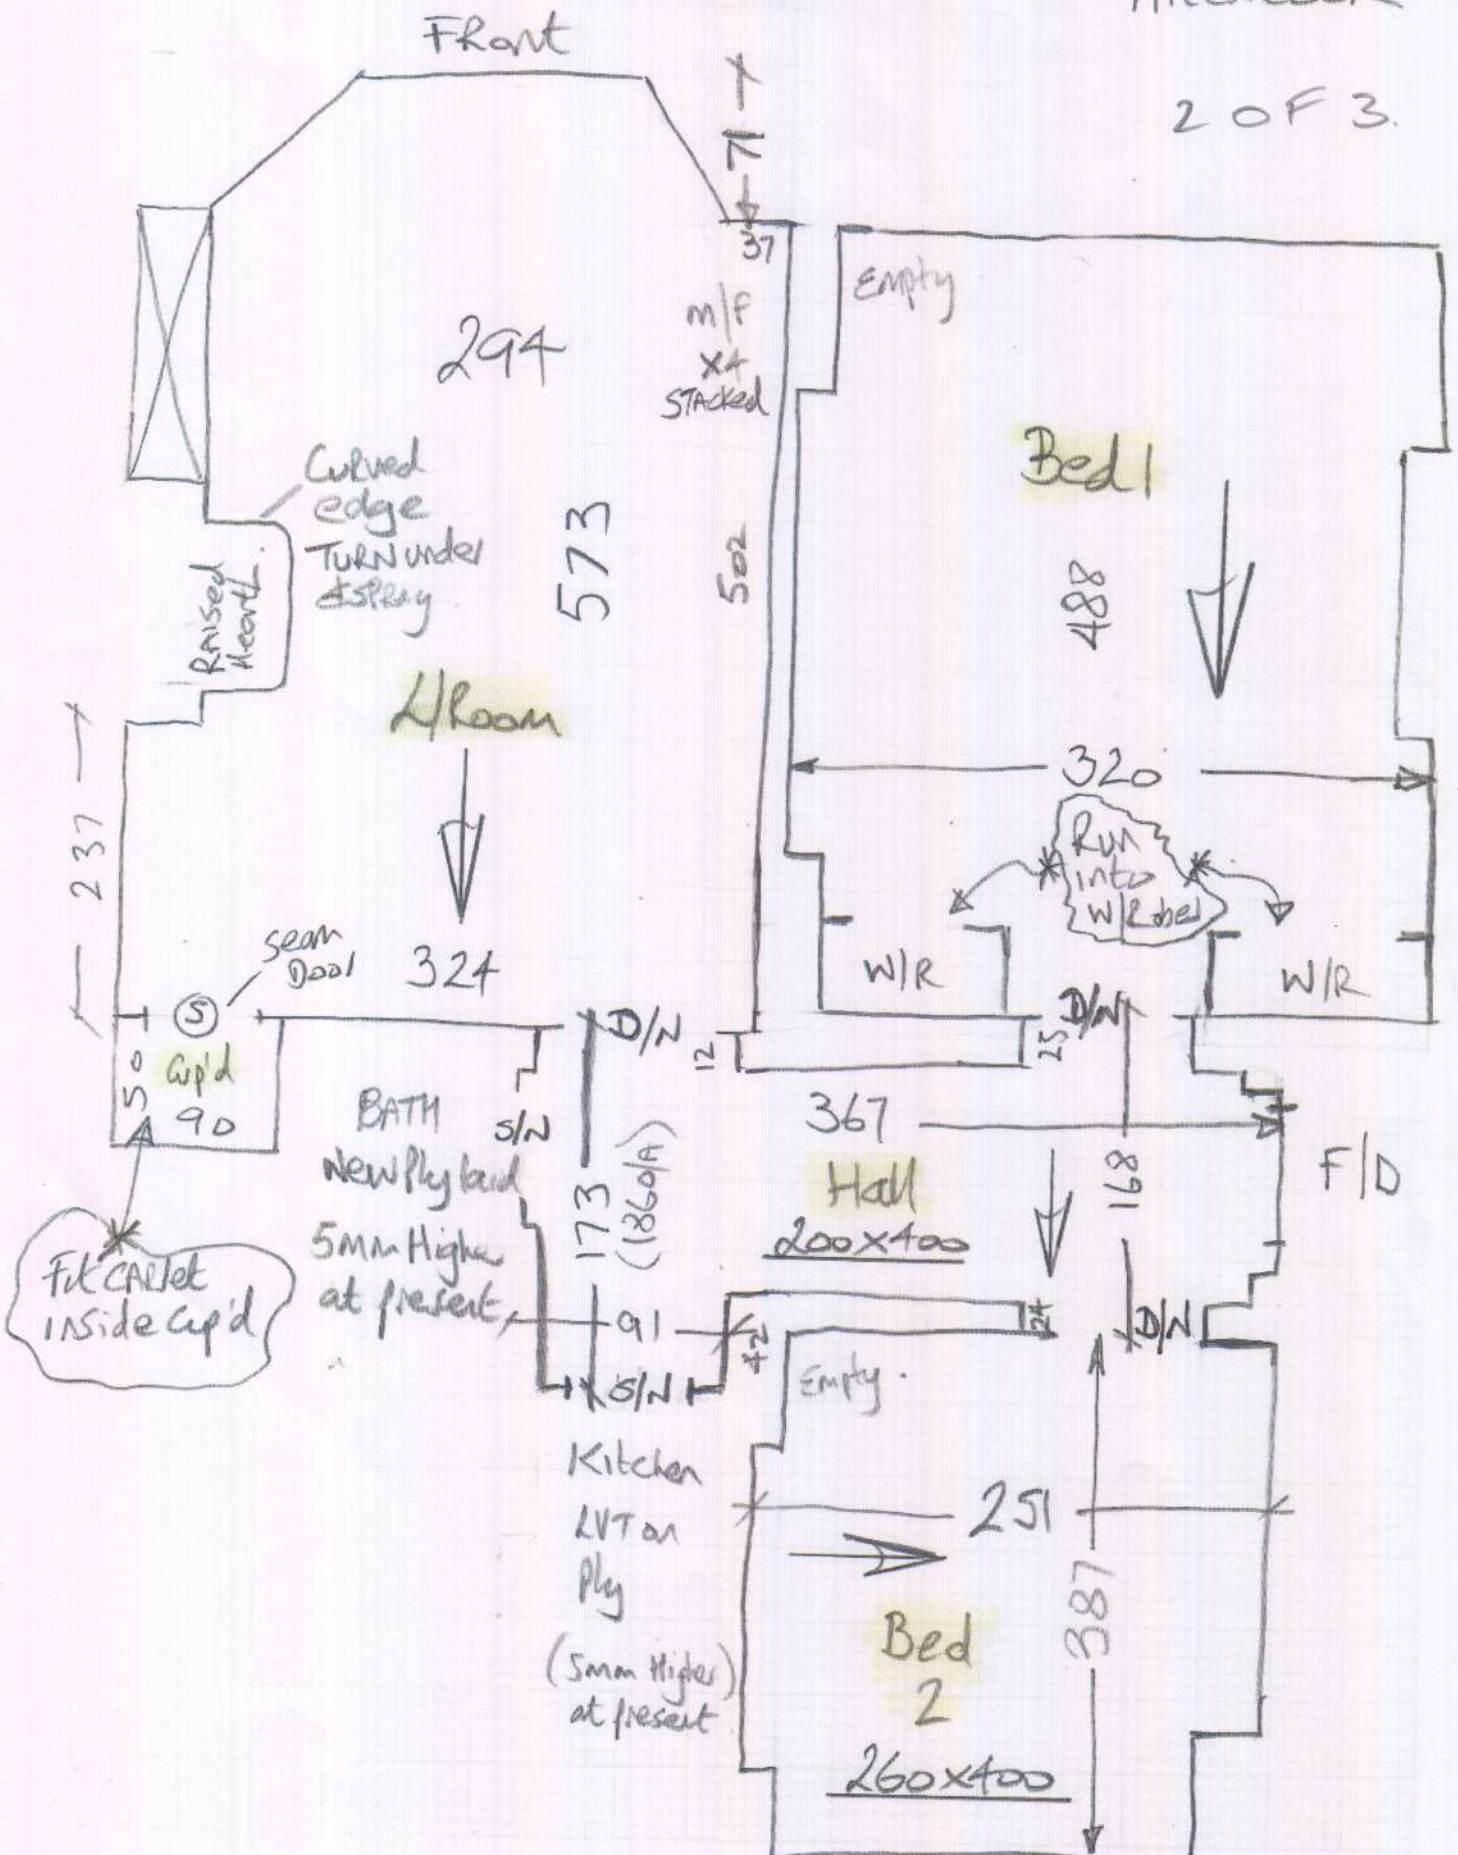 Front
2 OF 3.
71
37
Empty
m/f
x4
STACKed
294
Curved
edge
TURN under
& SPRay
RAISED
Hearth
573
502
Bed 1
488
L/Room
320
Run
into
W/Robes
237
seam
Door
324
S
W/R
W/R
D/N
D/N
12
25
Cup'd
50
90
BATH
New Ply laid
5mm Higher
at present
S/N
173
(186 O/A)
367
Hall
200x400
168
F/D
Fit CARPet
inside Cup'd
91
42
24
D/N
S/N
Empty.
Kitchen
LVT on
Ply
(5mm Higher)
at present
251
387
Bed
2
260x400